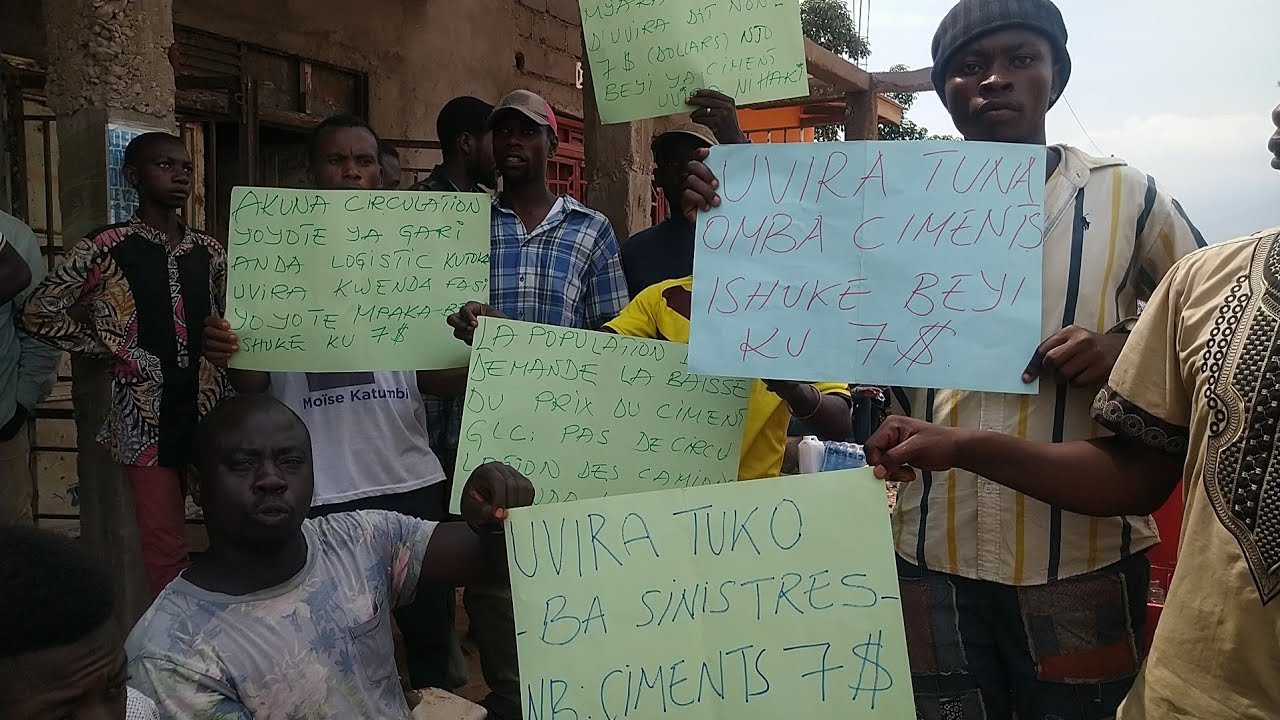 MYARA
D'UVIRA DIT NON-
7$ (DOLLARS) NJO
BEYI YA CIMENT
UVIRA NI HAKI
AKUNA CIRCULATION
YOYOTE YA GARI
ANDA LOGISTIC KUTOKA
UVIRA KWENDA FASI
YOYOTE MPAKA BE
ISHUKE KU 7$
UVIRA TUNA
OMBA CIMENTS
ISHUKE BEYI
KU 7$.
LA POPULATION
DEMANDE LA BAISSE
DU PRIX DU CIMENT
GLC; PAS DE CIRCU
LATION DES CAMIONS
Moïse Katumbi
UVIRA TUKO
-BA SINISTRES-
NB: CIMENTS 7$